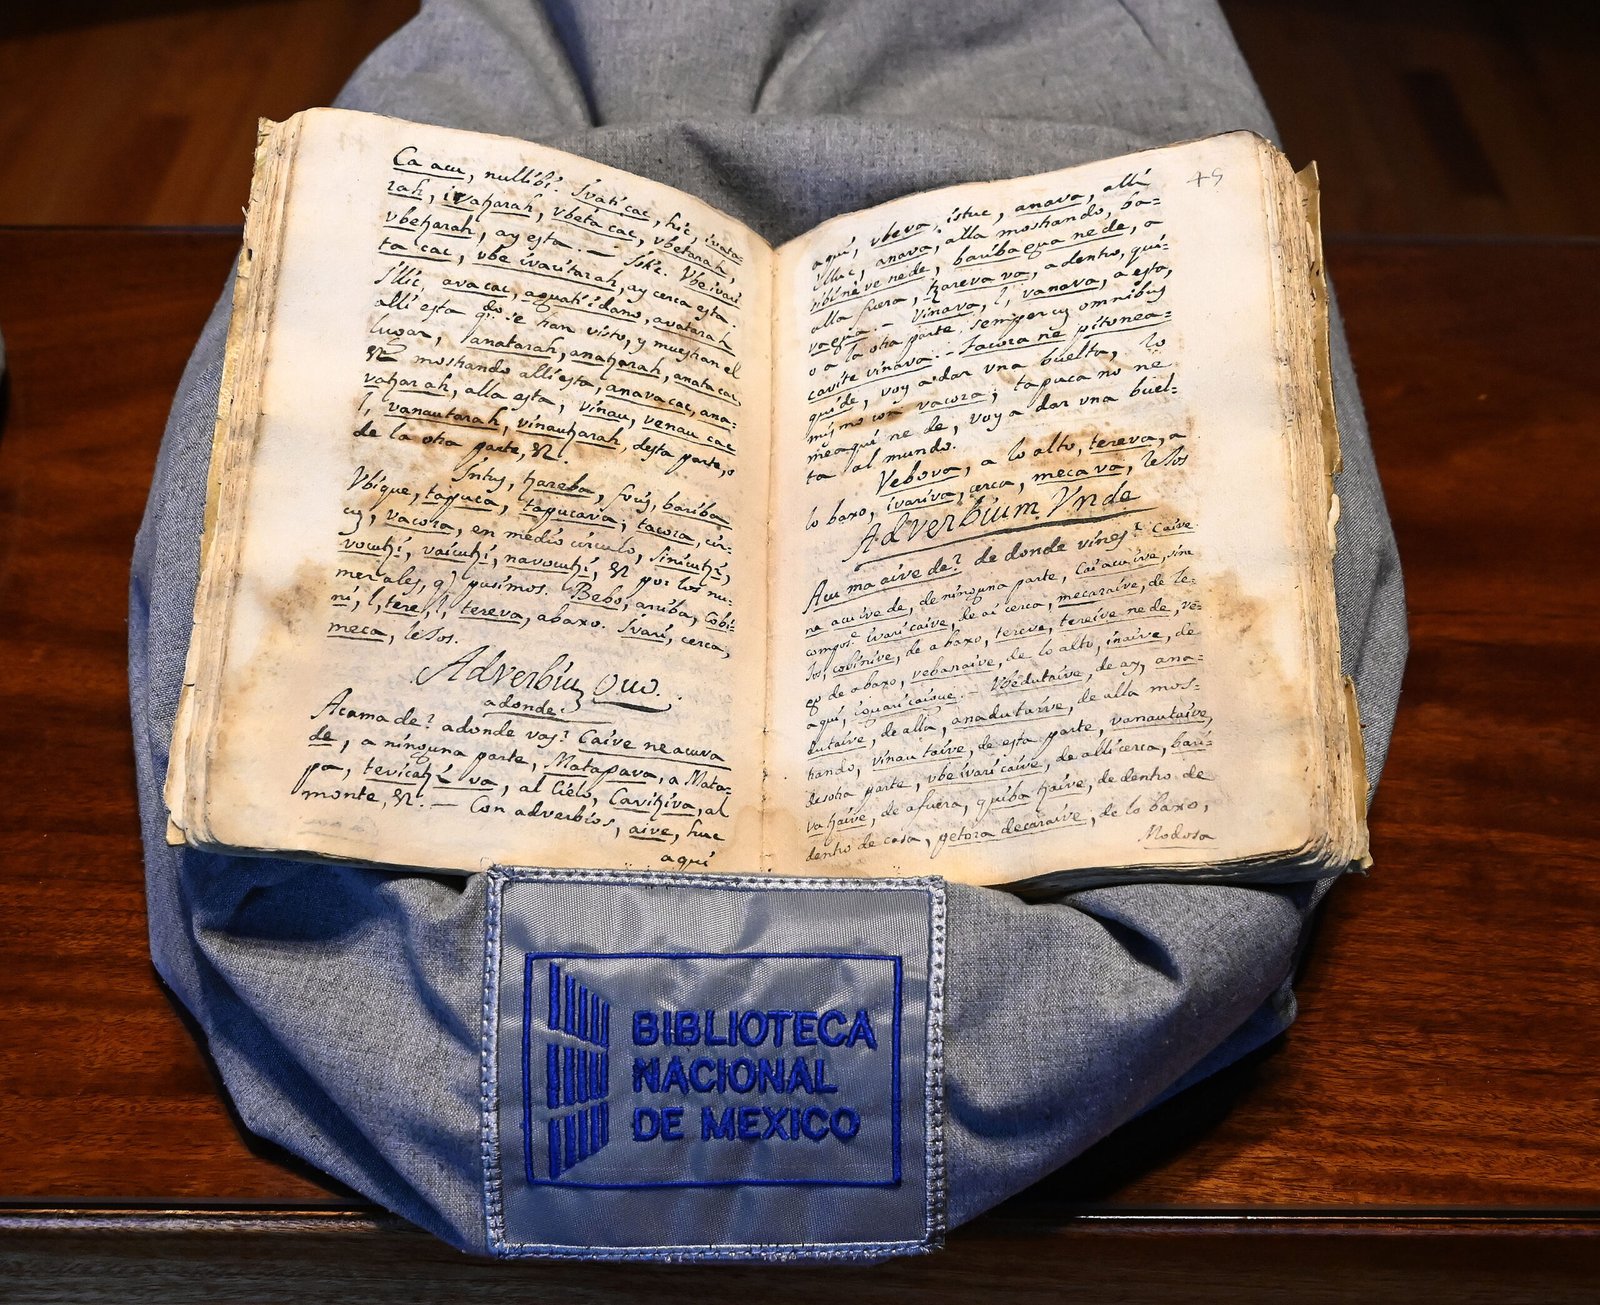 Ca acu, nullibi. Ivati cac, hic, ivata-
rah, ivaħarah, vbeta cac, vbetarah,
vbeħarah, ay esta. — Istic. Vbeivari
ta cac, vbe ivaritarah, ay cerca esta.
Illic, avacac, aquatidano, avatarah
alli esta qdo. se han visto, y muestran el
lugar, anatarah, anaħarah, anatacac
&. mostrando alli esta, anavacac, ana-
vaħarah, alla esta, vinau, venau cac
l, vanautarah, vinauħarah, desta parte, o
de la otra parte, &.
Intus, ħareba, foris, bariba
Vbique, tapuca, tapucava, tacora, cir-
cu, vacora, en medio circulo, Sinicuħi,
vocuħi, vaicuħi, navocuħi, & por los nu-
merales, q) pusimos. Bebo, arriba, Cobi-
ni, l, tere, l, tereva, abaxo. Ivari, cerca,
meca, lexos.
Adverbiu Quo.
adonde.
Acama de? adonde vas? Caive ne acuva
de, a ninguna parte, Matapava, a Mata-
pa, tevicaħi va, al Cielo, Caviħiva, al
monte, &. — Con adverbios, aive, huc
aqui
45
aqui, vbeva, istuc, anava, alli
illuc, anava, alla mostrando, ba-
ne nede, baribagua nede, a
alla fuera, ħareva va, a dentro, qui-
— vinava, l, vanava, a esta,
o a la otra parte. semper cu omnibus
cavite vinava. — Tacora ne pitonea-
quide, voy a dar vna buelta, lo
mismo con vacora; tapuca no ne
meaqui ne de, voy a dar vna buel-
ta al mundo.
Vebova, a lo alto, tereva, a
lo baxo, ivariva, cerca, mecava, lexos
Adverbium Vnde
Acu ma aive de? de donde vines? Caive
na acuive de, de ninguna parte, Cai acuive, sine
compos.e ivari caive, de ai cerca, mecaraive, de le-
xos, cobinive, de abaxo, tereve, tereive ne de, ve-
go de abaxo, vebanaive, de lo alto, inaive, de
aqui, — Vbedutaive, de ay, ana-
dutaive, de alla, anadutarve, de alla mos-
trando, vinautaive, de esta parte, vanautaive,
desotra parte, vbe ivari caive, de alli cerca, bari-
va ħaive, de afuera, quiba ħaive, de dentro de
dentro de casa, getora decaraive, de lo baxo,
Modosa
BIBLIOTECA
NACIONAL
DE MEXICO